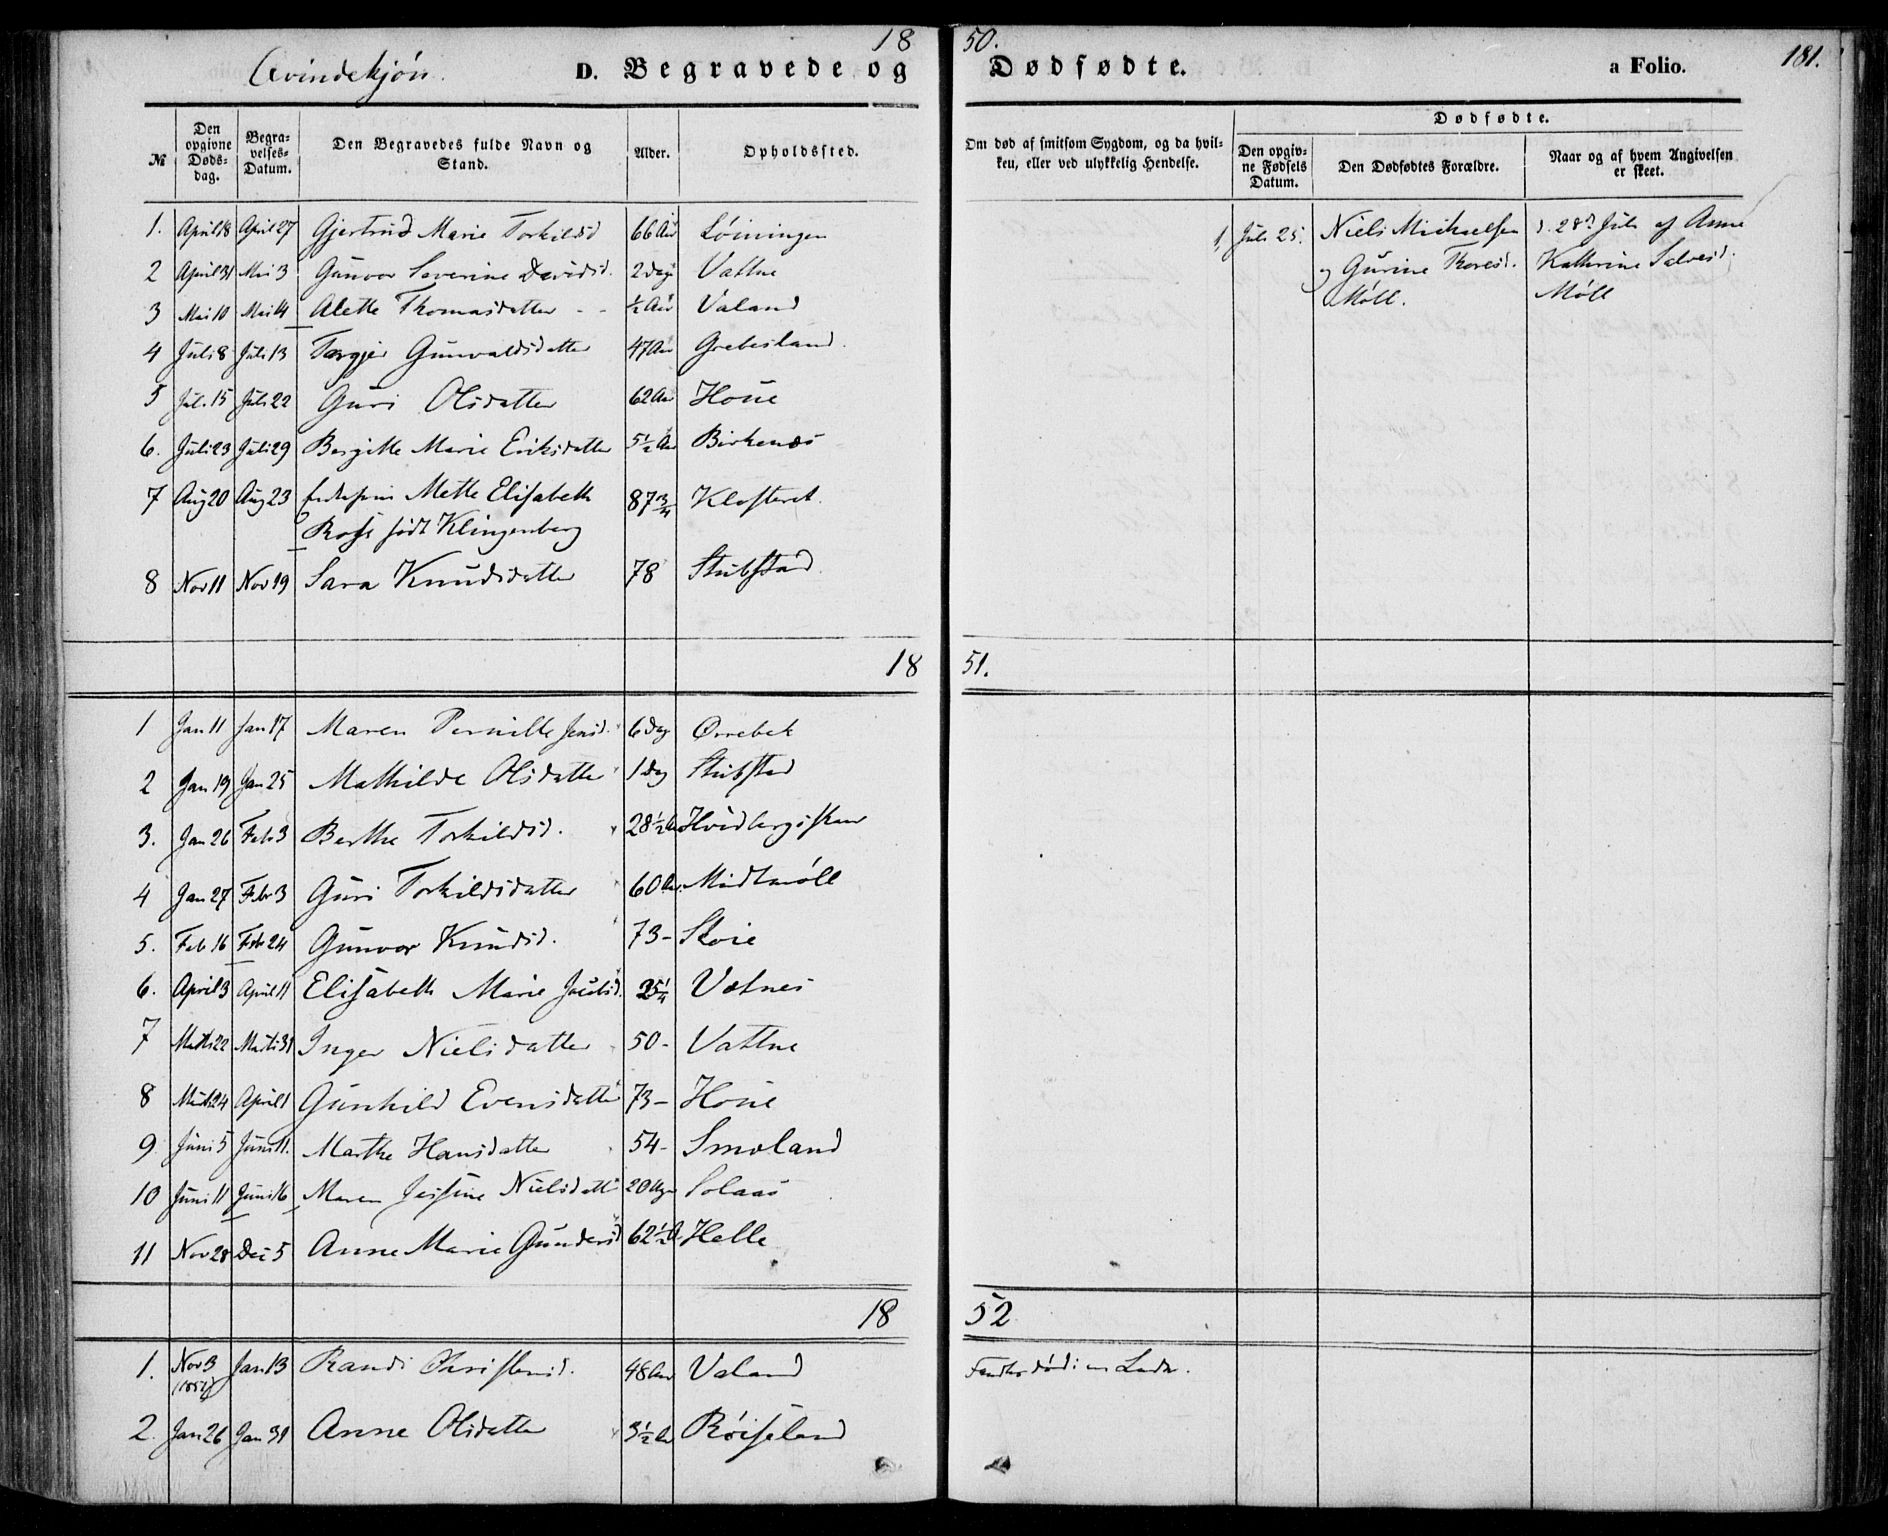 Qvindekjön. D. Begravede og 18
50. Dødfødte. a Folio. 181.
№ Den opgivne Døds-dag. Begra-velses-Datum. Den Begravedes fulde Navn og Stand. Alder. Opholdssted.
Om død af smitsom Sygdom, og da hvil-ken, eller ved ulykkelig Hendelse. Dødfødte. Den opgiv-ne Fødsels Datum. Den Dødfødtes Forældre. Naar og af hvem Angivelsen er skeet.
1. April 18 April 27 Gjertrud Marie Torkildsd 66 Aar Löiningen
2 April 31 Mai 3 Gunvor Severine Davidsd. 2 Dage Vattne
3 Mai 10 Mai 14 Alette Thomasdatter - - ½ Aar Valand
4 Juli 8 Juli 13 Torgjer Gunvaldsdatter 47 Aar Grebesland.
5 Juli 15 Juli 22 Guri Olsdatter 62 Aar Houe
6. Juli 23 Juli 29 Bergitte Marie Eriksdatter 5½ Aar Birkenæs
7 Aug 20 Aug 23 Mette Elisabeth 87¾ Klosteret.
Ross födt Klingenberg
8 Nov 11 Nov 19 Sara Knudsdatter 78 Stubstad
1. Juli 25. Niels Michaelsen d. 28d Juli af Anne
og Gurine Thoresd. Kathrine Salvesd.
Möll. Möll
18 51.
1 Jan 11 Jan 17 Maren Pernille Jensd. 6 Dag Ørrebek
2 Jan 19 Jan 25 Mathilde Olsdatter 1 Dag Stubstad
3. Jan 26 Feb 3 Berthe Torkildsd. 28½ Hvidbergsskar
4 Jan 27 Febr 3 Guri Torkildsdatter 60 Aar. Midtmöll
5. Feb 16 Febr 24 Gunvor Knudsd. 73 - Skoie
6. April 3 April 11 Elisabeth Marie 25¼ Vatnes
7 Marts 22 Marts 31 Inger Nielsdatter 50 - Vattne
8 Marts 24 April 1 Gunhild Evensdatter 73 - Houe
9 Juni 5 Juni 11. Marthe Hansdatter 54 - Smaland
10 Juni 11 Juni 16 Maren Jensine Nielsdatt 20 Uger Solaas
11 Nov 28 Dec 5 Anne Marie Gundersd 62½ Helle
18 52
1. Nov 3 (1851) Jan 13 Randi Christensd. 48 Aar Valand död i en Lade.
2. Jan 26 Jan 31 Anne Olsdatter 3½ Aar Röiseland